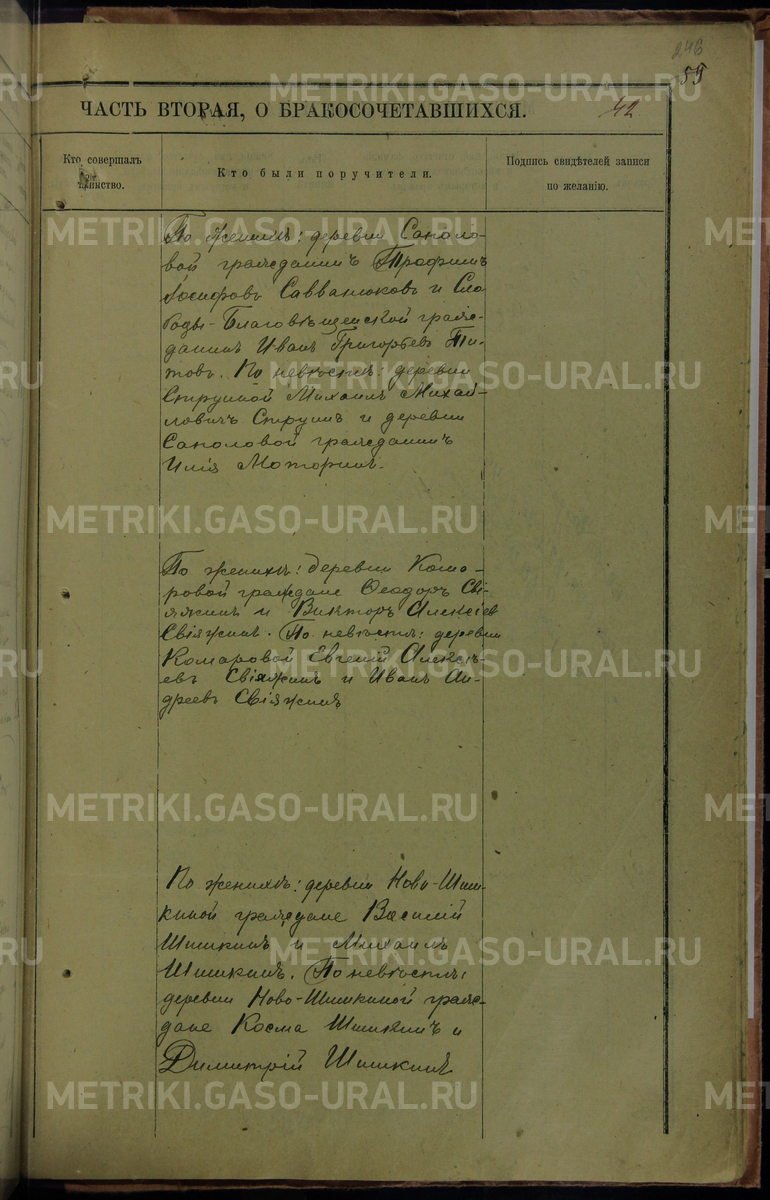 246
55
ЧАСТЬ ВТОРАЯ, О БРАКОСОЧЕТАВШИХСЯ.
42
Кто совершалъ таинство.
Кто были поручители.
Подпись свидѣтелей записи по желанію.
По женихѣ: деревни Саколо-
вой гражданинъ Трофимъ
Іосифовъ Савванюковъ и Сло
боды-Благовѣщенской граж-
данинъ Иванъ Григорьевъ Ти-
товъ. По невѣстѣ: деревни
Струиной Михаилъ Михай-
ловичъ Струинъ и деревни
Саколовой гражданинъ
Илія Маторинъ.
По женихѣ: деревни Кома-
ровой граждане Ѳеодоръ Сві-
яжинъ и Викторъ Алексіев
Свіяжинъ. По невѣстѣ: деревни
Комаровой Евгеній Алексѣ-
евъ Свіяжинъ и Иванъ Ан-
дреевъ Свіяжинъ
По женихѣ: деревни Ново-Шиш-
киной граждане Василій
Шишкинъ и Михаилъ
Шишкинъ. По невѣстѣ:
деревни Ново-Шишкиной граж-
дане Косма Шишкинъ и
Димитрій Шишкинъ
METRIKI.GASO-URAL.RU